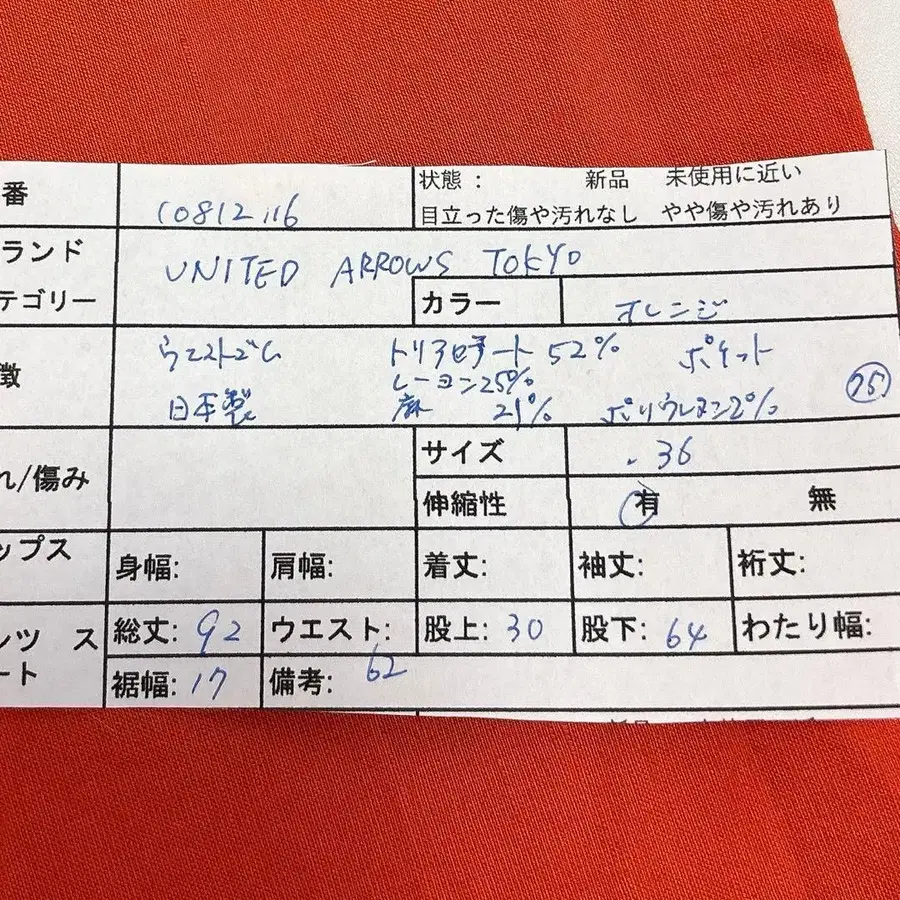 番 10812116 状態： 新品 未使用に近い
目立った傷や汚れなし やや傷や汚れあり
ランド UNITED ARROWS TOKYO
テゴリー カラー オレンジ
徴 ウエストゴム トリアセテート 52% ポケット
レーヨン25%
日本製 麻 21% ポリウレタン2% 25
れ/傷み サイズ 36
伸縮性 有 無
ップス 身幅: 肩幅: 着丈: 袖丈: 裄丈:
ンツ ス 総丈: 92 ウエスト: 62 股上: 30 股下: 64 わたり幅:
ート 裾幅: 17 備考: